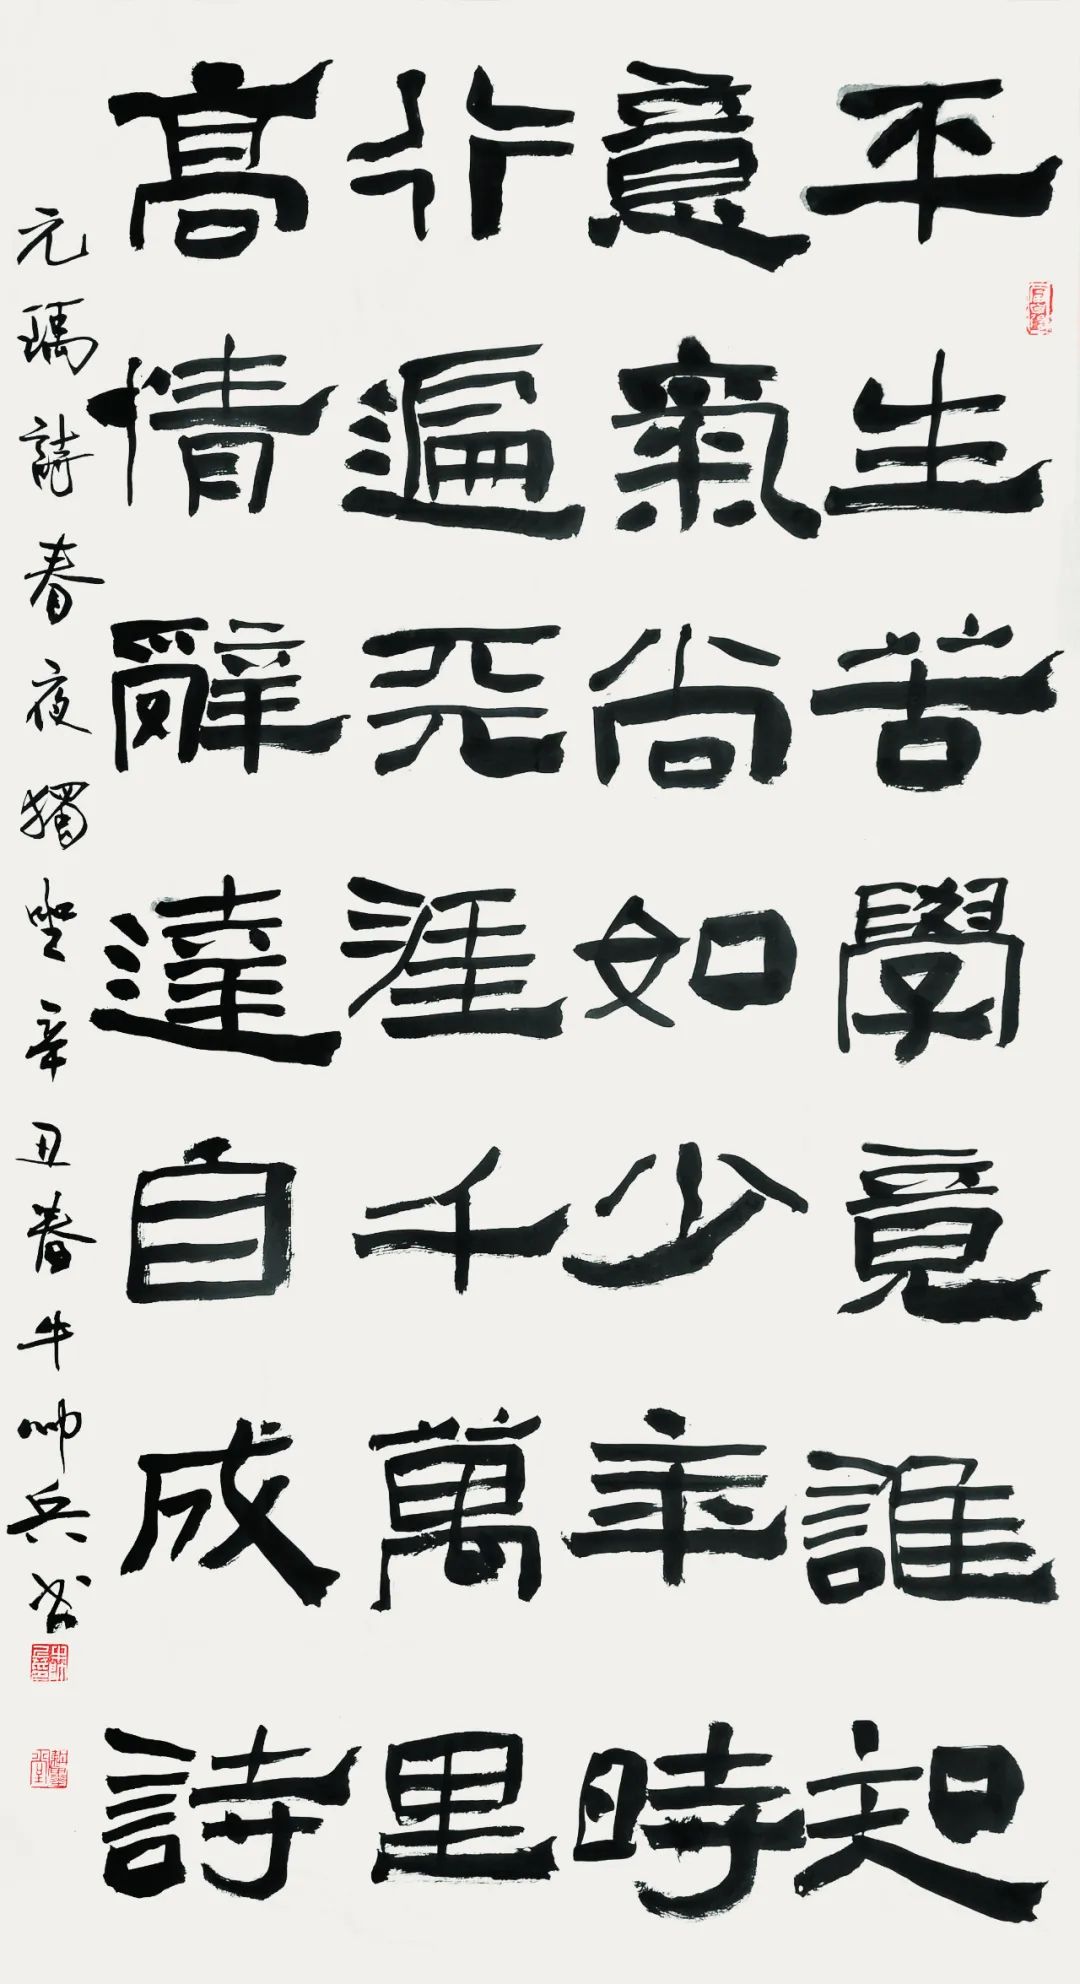 平生苦學竟誰知
意氣尚如少年時
行遍天涯千萬里
高情辭達自成詩
元瑀詩春夜獨坐辛丑春牛帅兵书